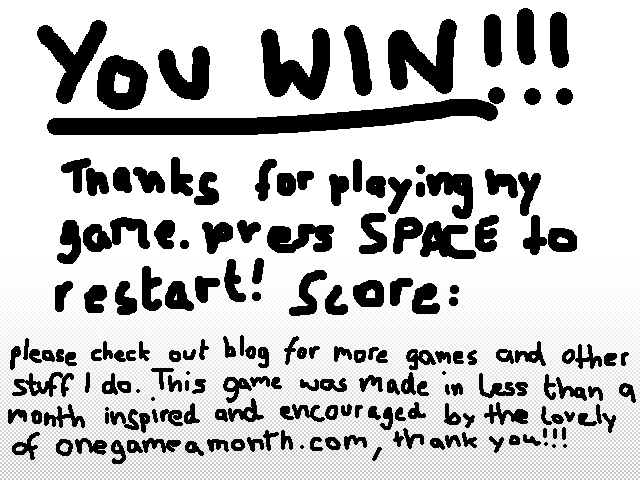 You WIN!!!
Thanks for playing my
game. press SPACE to
restart! Score:
please check out blog for more games and other
stuff I do. This game was made in less than a
month inspired and encouraged by the lovely
of onegameamonth.com, thank you!!!